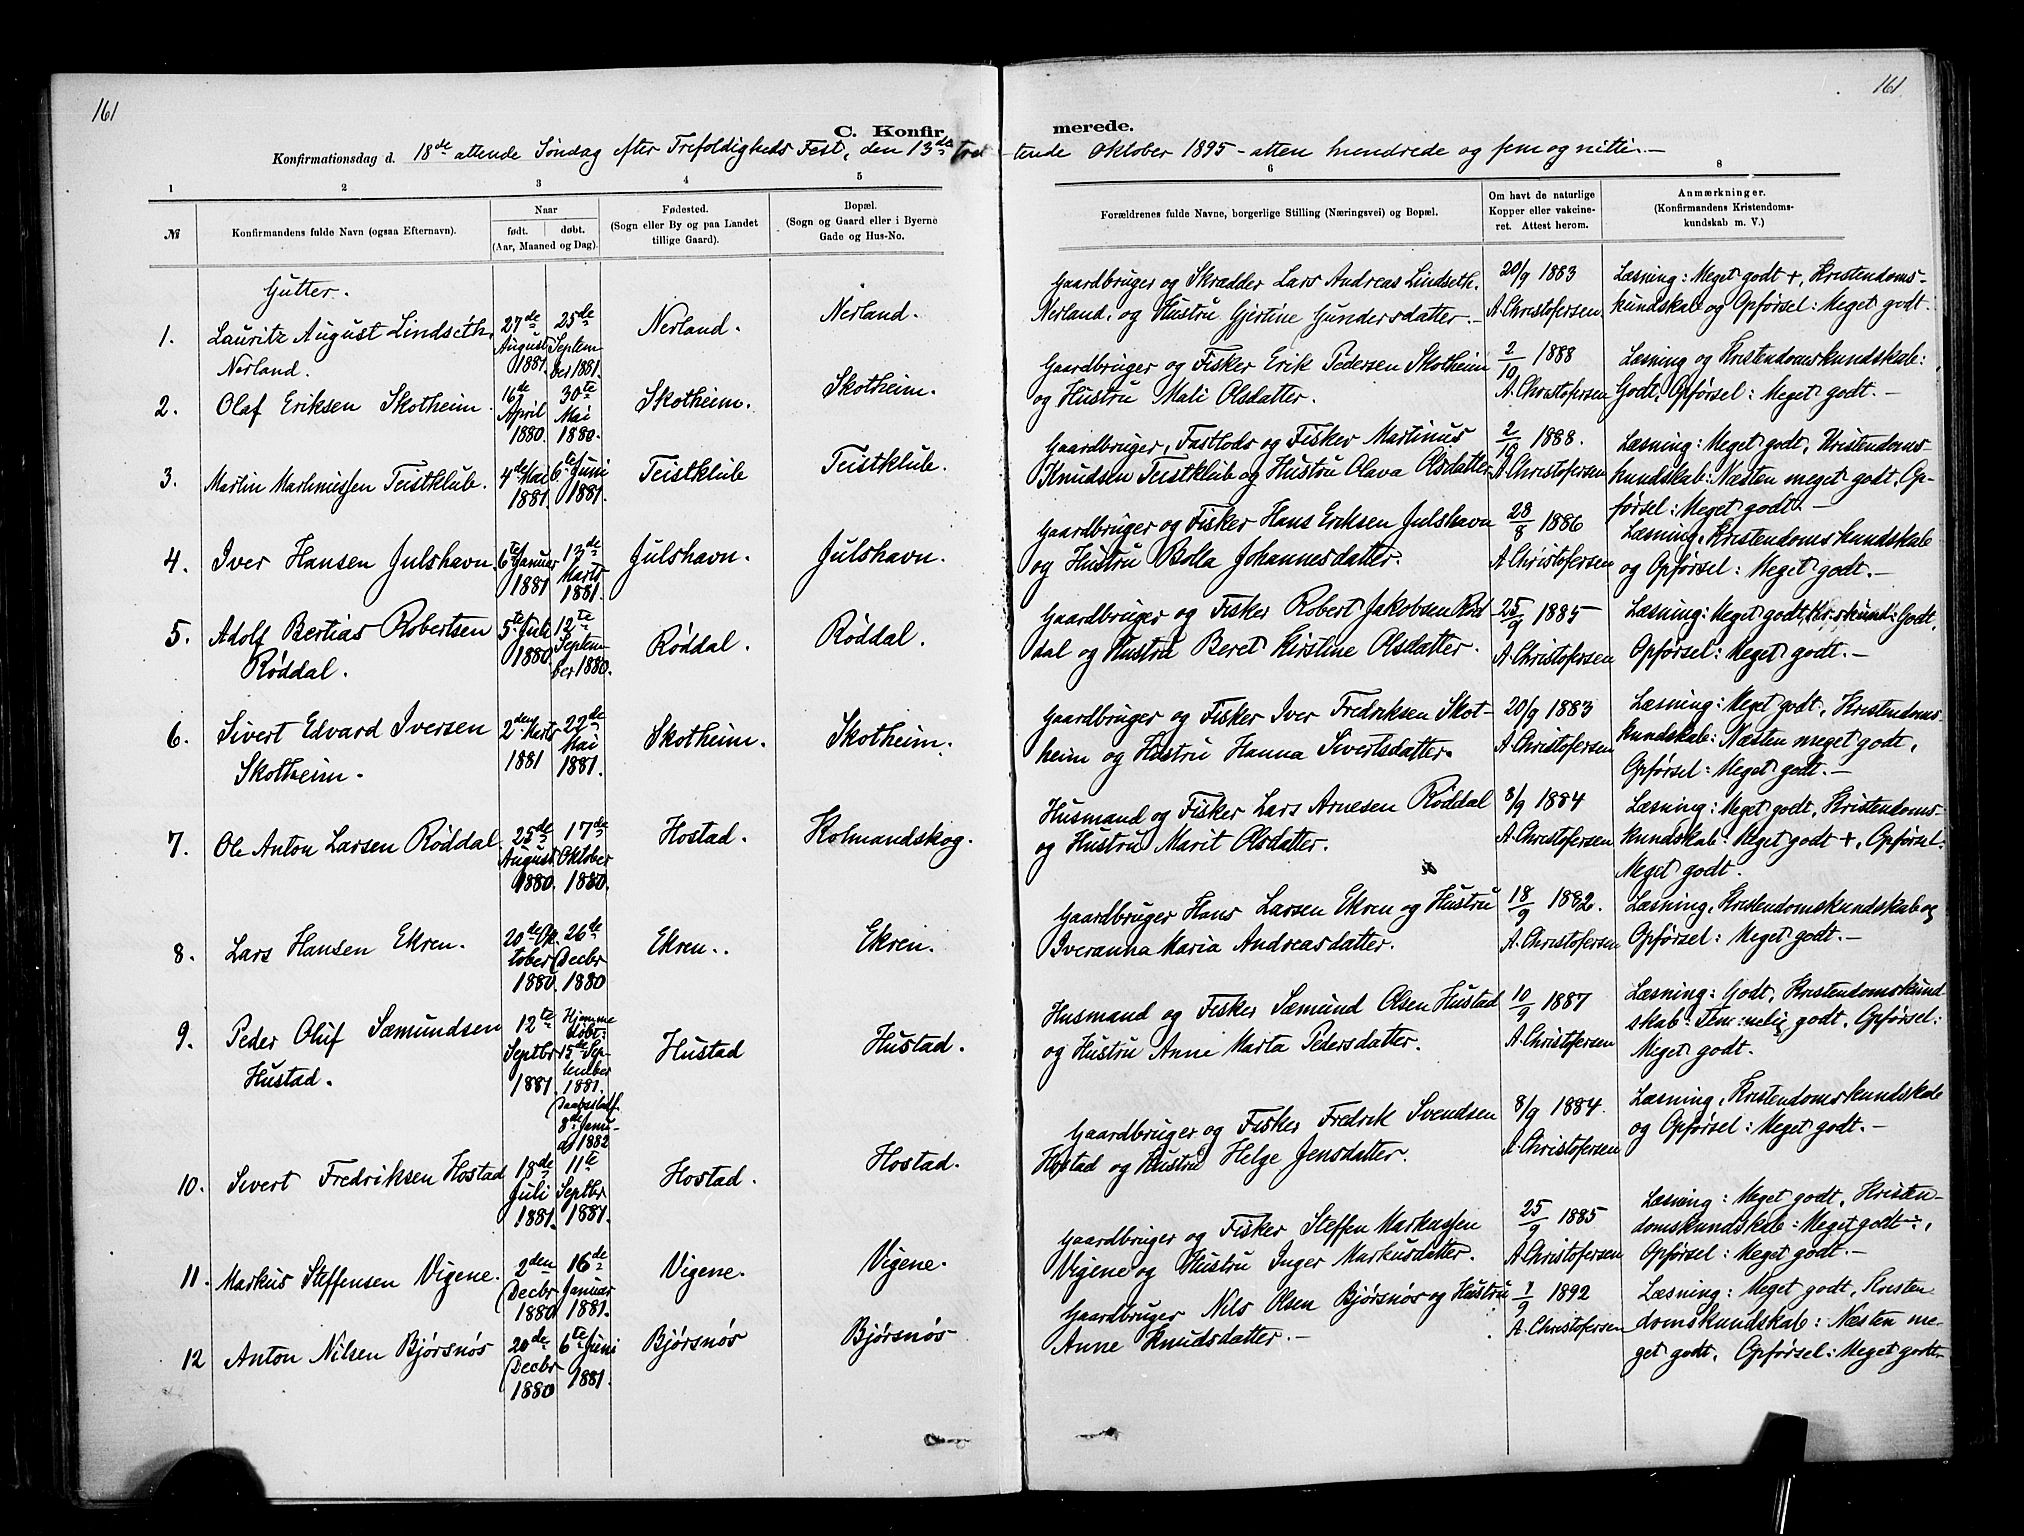 161
161
C. Konfir merede.
Konfirmationsdag d. 18de attende Søndag efter Trefoldigheds Fest, den 13de tret-
tende Oktober 1895 - atten hundrede og fem og nitti. -
1 2 3 4 5 6 8
№
Konfirmandens fulde Navn (ogsaa Efternavn).
Naar
født. døbt.
(Aar, Maaned og Dag).
Fødested.
(Sogn eller By og paa Landet
tillige Gaard).
Bopæl.
(Sogn og Gaard eller i Byerne
Gade og Hus-No.
Forældrenes fulde Navne, borgerlige Stilling (Næringsvei) og Bopæl.
Om havt de naturlige
Kopper eller vakcine-
ret. Attest herom.
Anmærkninger.
(Konfirmandens Kristendoms-
kundskab m. V.)
Gutter.
1. Lauritz August Lindseth
Nerland.
27de August 1881.
25de Septem-
ber 1881.
Nerland.
Nerland.
Gaardbruger og Skrædder Lars Andreas Lindseth
Nerland. og Hustru Gjertine Gundersdatter. -
20/9 1883
A. Christofersen
Læsning: Meget godt +, Kristendoms-
kundskab og Opførsel: Meget godt.
2. Olaf Eriksen Skotheim.
16de April 1880.
30te Mai 1880.
Skotheim.
Skotheim.
Gaardbruger og Fisker Erik Pedersen Skotheim
og Hustru Mali Olsdatter.
2/10 1888
A. Christofersen
Læsning og Kristendomskundskab:
Godt, Opførsel: Meget godt. -
3. Martin Martinussen Teistklub.
4de Mai 1881.
6te Juni 1881.
Teistklub
Teistklub.
Gaardbruger, Fastlods og Fisker Martinus
Knudsen Teistklub og Hustru Olava Olsdatter
2/10 1888.
A. Christofersen
Læsning: Meget godt, Kristendoms-
kundskab: Næsten meget godt, Op-
førsel: Meget godt. -
4. Iver Hansen Julshavn.
6te Januar 1881
13de Marts 1881.
Julshavn.
Julshavn.
Gaardbruger og Fisker Hans Eriksen Julshavn
og Hustru Bolla Johannesdatter.
28/8 1886
A. Christofersen
Læsning, Kristendomskundskab
og Opførsel: Meget godt. -
5. Adolf Bertias Robertsen
Røddal.
5te Juli 1880.
12te Septem-
ber 1880.
Røddal.
Røddal.
Gaardbruger og Fisker Robert Jakobsen Rød-
dal og Hustru Beret Kirstine Olsdatter.
25/9 1885
A. Christofersen
Læsning: Meget godt, Kr.skund: Godt,
Opførsel: Meget godt. -
6. Sivert Edvard Iversen
Skotheim.
2den Marts 1881
22de Mai 1881.
Skotheim.
Skotheim.
Gaardbruger og Fisker Iver Fredriksen Skot-
heim og Hustru Hanna Sivertsdatter.
20/9 1883
A. Christofersen
Læsning: Meget godt, Kristendoms-
kundskab: Næsten meget godt,
Opførsel: Meget godt. -
7. Ole Anton Larsen Røddal
25de August 1880.
17de Oktober 1880.
Hostad.
Holmandskog.
Husmand og Fisker Lars Arnesen Røddal
og Hustru Marit Olsdatter.
8/9 1884
A. Christofersen
Læsning: Meget godt, Kristendoms-
kundskab: Meget godt +, Opførsel:
Meget godt.
8. Lars Hansen Ekren.
20de Ok-
tober 1880.
26de Decbr 1880
Ekren..
Ekren.
Gaardbruger Hans Larsen Ekren og Hustru
Iveranna Maria Andreasdatter.
18/9 1892.
A. Christofersen
Læsning, Kristendomskundskab og
Opførsel: Meget godt. -
9. Peder Oluf Sæmundsen
Hustad.
12te Septbr 1881.
Hjemme
døbt:
15de Sep-
tember
1881.
Daabsstadf.
8de Janu-
ar 1882
Hustad
Hustad.
Husmand og Fisker Sæmund Olsen Hustad
og Hustru Anne Marta Pedersdatter.
10/9 1887
A. Christofersen
Læsning: Godt, Kristendomskund-
skab: Temmelig godt, Opførsel:
Meget godt.
10. Sivert Fredriksen Hostad
18de Juli 1881.
11te Septbr 1881.
Hostad.
Hostad.
Gaardbruger og Fisker Fredrik Svendsen
Hostad og Hustru Helge Jensdatter.
8/9 1884.
A. Christofersen
Læsning, Kristendomskundskab
og Opførsel: Meget godt. -
11. Markus Steffensen Vigene.
2den Decbr 1880.
16de Januar 1881.
Vigene.
Vigene.
Gaardbruger og Fisker Steffen Markussen
Vigene og Hustru Inger Markusdatter.
25/9 1885
A. Christofersen
Læsning: Meget godt, Kristen-
domskundskab: Meget godt ÷,
Opførsel: Meget godt. -
12 Anton Nilsen Bjørsnøs
20de Decbr 1880
6te Juni 1881.
Bjørsnøs
Bjørsnøs
Gaardbruger Nils Olsen Bjørsnøs og Hustru
Anne Knudsdatter. -
1892
A. Christofersen
Læsning: Meget godt, Kristen
domskundskab: Næsten me-
get godt, Opførsel: Meget godt-